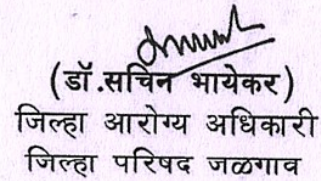 (डॉ.सचिन भायेकर)
जिल्हा आरोग्य अधिकारी
जिल्हा परिषद जळगाव